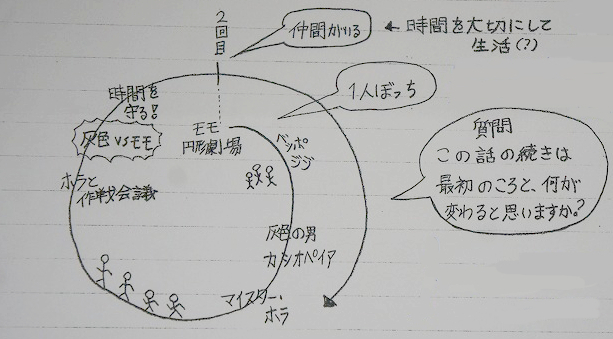 2回目
仲間がいる
← 時間を大切にして
生活(?)
時間を
守る!
1人ぼっち
灰色vsモモ
モモ
円形劇場
ベッポ
ジジ
質問
この話の続きは
最初のころと、何が
変わると思いますか?
ホラと
作戦会議
灰色の男
カシオペイア
マイスター・
ホラ